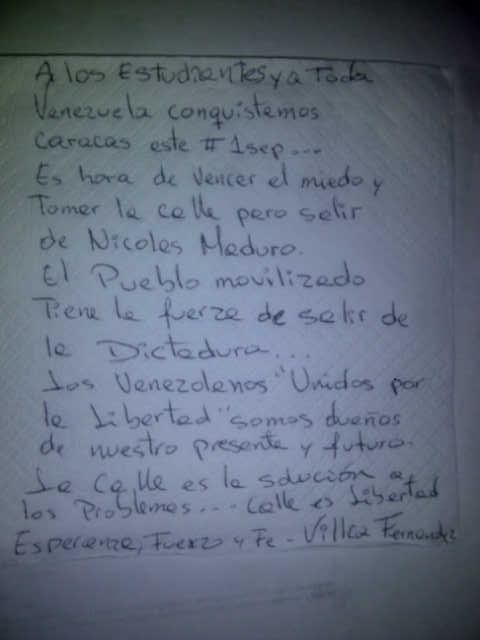 A los Estudiantes y a Toda
Venezuela conquistemos
Caracas este #1sep...
Es hora de vencer el miedo y
Tomar la calle pero salir
de Nicolas Maduro.
El Pueblo movilizado
Tiene la fuerza de salir de
la Dictadura...
Los Venezolanos "Unidos por
la Libertad" somos dueños
de nuestro presente y futuro.
La Calle es la solución a
los Problemas... Calle es Libertad
Esperanza, Fuerza y Fe - Villca Fernandez